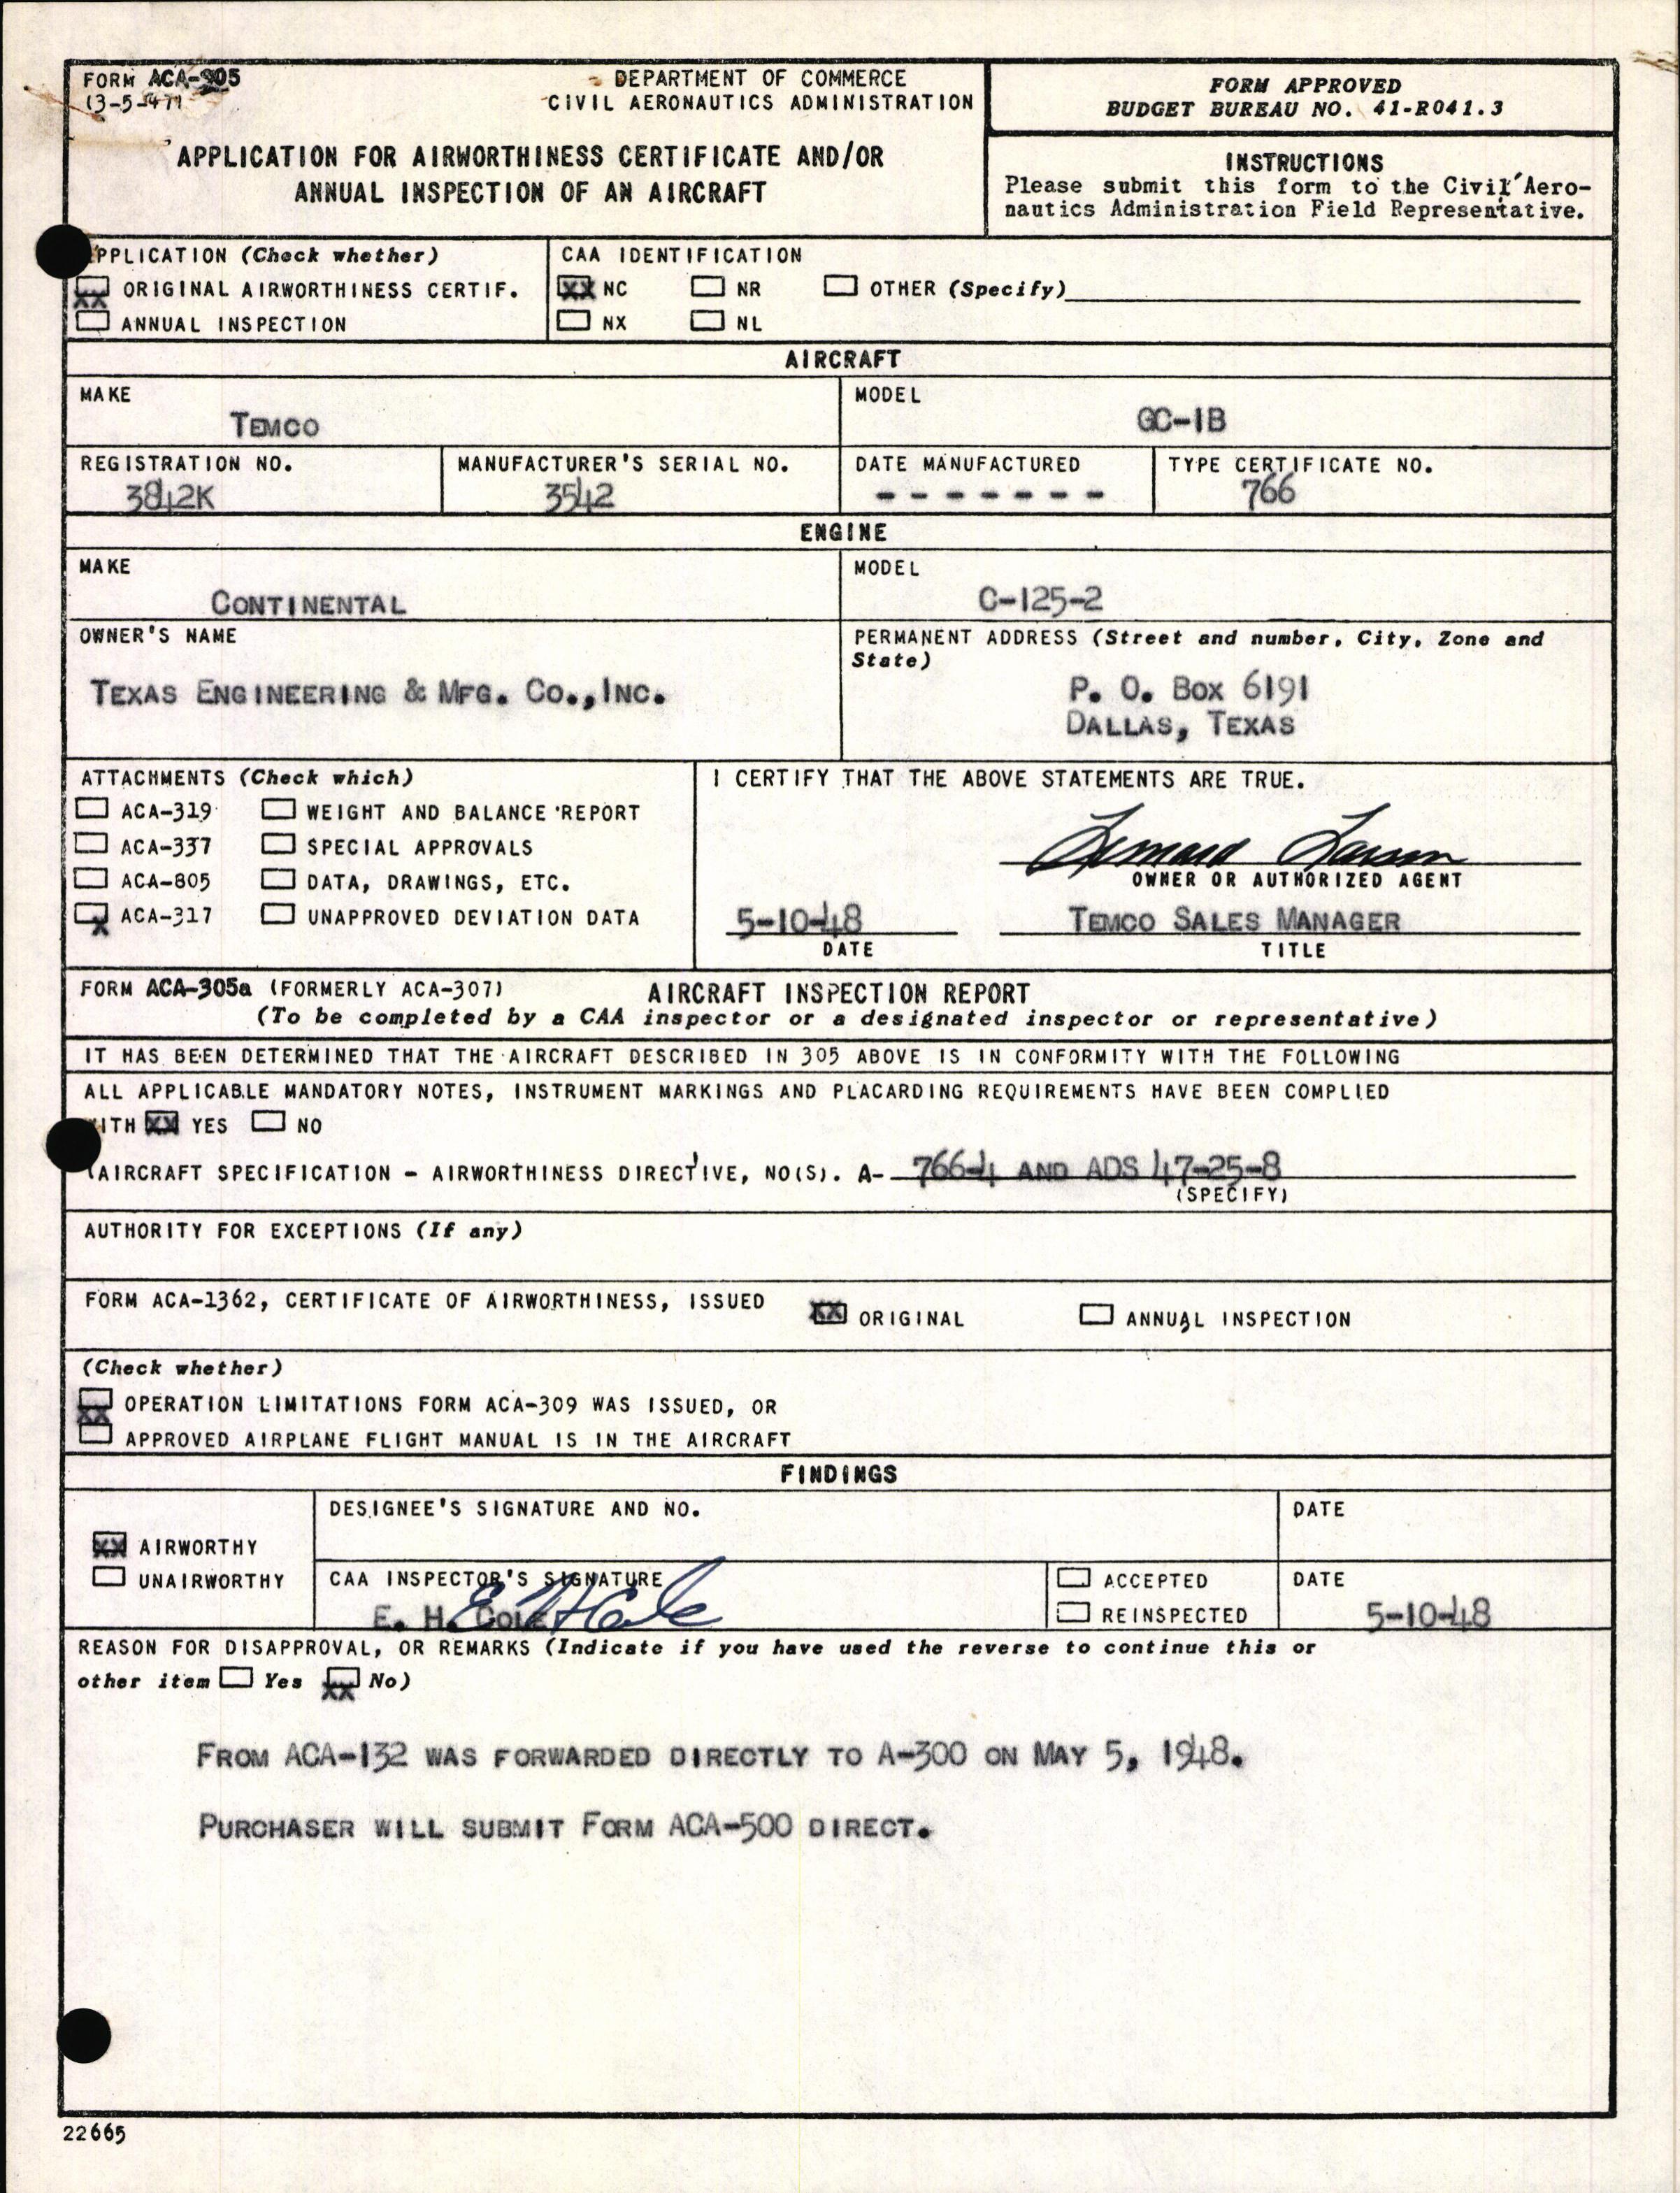 FORM ACA-305
(3-5-47)
DEPARTMENT OF COMMERCE
CIVIL AERONAUTICS ADMINISTRATION
APPLICATION FOR AIRWORTHINESS CERTIFICATE AND/OR
ANNUAL INSPECTION OF AN AIRCRAFT
FORM APPROVED
BUDGET BUREAU NO. 41-R041.3
INSTRUCTIONS
Please submit this form to the Civil Aero-
nautics Administration Field Representative.
PPLICATION (Check whether)
XX ORIGINAL AIRWORTHINESS CERTIF.
ANNUAL INSPECTION
CAA IDENTIFICATION
XX NC NR OTHER (Specify)
NX NL
AIRCRAFT
MAKE
TEMCO
MODEL
GC-1B
REGISTRATION NO.
3842K
MANUFACTURER'S SERIAL NO.
3542
DATE MANUFACTURED
- - - - - - -
TYPE CERTIFICATE NO.
766
ENGINE
MAKE
CONTINENTAL
MODEL
C-125-2
OWNER'S NAME
TEXAS ENGINEERING & MFG. CO.,INC.
PERMANENT ADDRESS (Street and number, City, Zone and
State)
P. O. BOX 6191
DALLAS, TEXAS
ATTACHMENTS (Check which)
ACA-319 WEIGHT AND BALANCE REPORT
ACA-337 SPECIAL APPROVALS
ACA-805 DATA, DRAWINGS, ETC.
X ACA-317 UNAPPROVED DEVIATION DATA
I CERTIFY THAT THE ABOVE STATEMENTS ARE TRUE.
Larson
OWNER OR AUTHORIZED AGENT
5-10-48 TEMCO SALES MANAGER
DATE TITLE
FORM ACA-305a (FORMERLY ACA-307) AIRCRAFT INSPECTION REPORT
(To be completed by a CAA inspector or a designated inspector or representative)
IT HAS BEEN DETERMINED THAT THE AIRCRAFT DESCRIBED IN 305 ABOVE IS IN CONFORMITY WITH THE FOLLOWING
ALL APPLICABLE MANDATORY NOTES, INSTRUMENT MARKINGS AND PLACARDING REQUIREMENTS HAVE BEEN COMPLIED
ITH XX YES NO
(AIRCRAFT SPECIFICATION - AIRWORTHINESS DIRECTIVE, NO(S). A- 766-4 AND ADS 47-25-8
(SPECIFY)
AUTHORITY FOR EXCEPTIONS (If any)
FORM ACA-1362, CERTIFICATE OF AIRWORTHINESS, ISSUED XX ORIGINAL ANNUAL INSPECTION
(Check whether)
XX OPERATION LIMITATIONS FORM ACA-309 WAS ISSUED, OR
APPROVED AIRPLANE FLIGHT MANUAL IS IN THE AIRCRAFT
FINDINGS
XX AIRWORTHY
UNAIRWORTHY
DESIGNEE'S SIGNATURE AND NO.
DATE
CAA INSPECTOR'S SIGNATURE
E. H. COLE E H Cole
ACCEPTED
REINSPECTED
DATE
5-10-48
REASON FOR DISAPPROVAL, OR REMARKS (Indicate if you have used the reverse to continue this or
other item Yes XX No)
FROM ACA-132 WAS FORWARDED DIRECTLY TO A-300 ON MAY 5, 1948.
PURCHASER WILL SUBMIT FORM ACA-500 DIRECT.
22665